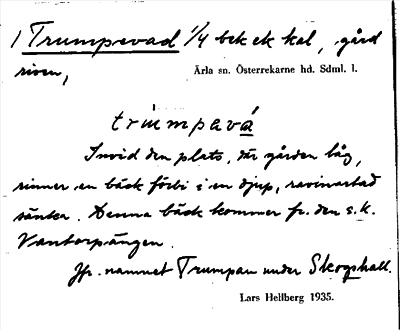 1 Trumpevad 1/4 bek ek kal, gård
riven,
Ärla sn. Österrekarne hd. Sdml. l.
trumpavá
Invid den plats, där gården låg,
rinner en bäck förbi i en djup, ravinartad
sänka. Denna bäck kommer fr. den s.k.
Vantorpängen.
Jfr. namnet Trumpan under Skogshall.
Lars Hellberg 1935.